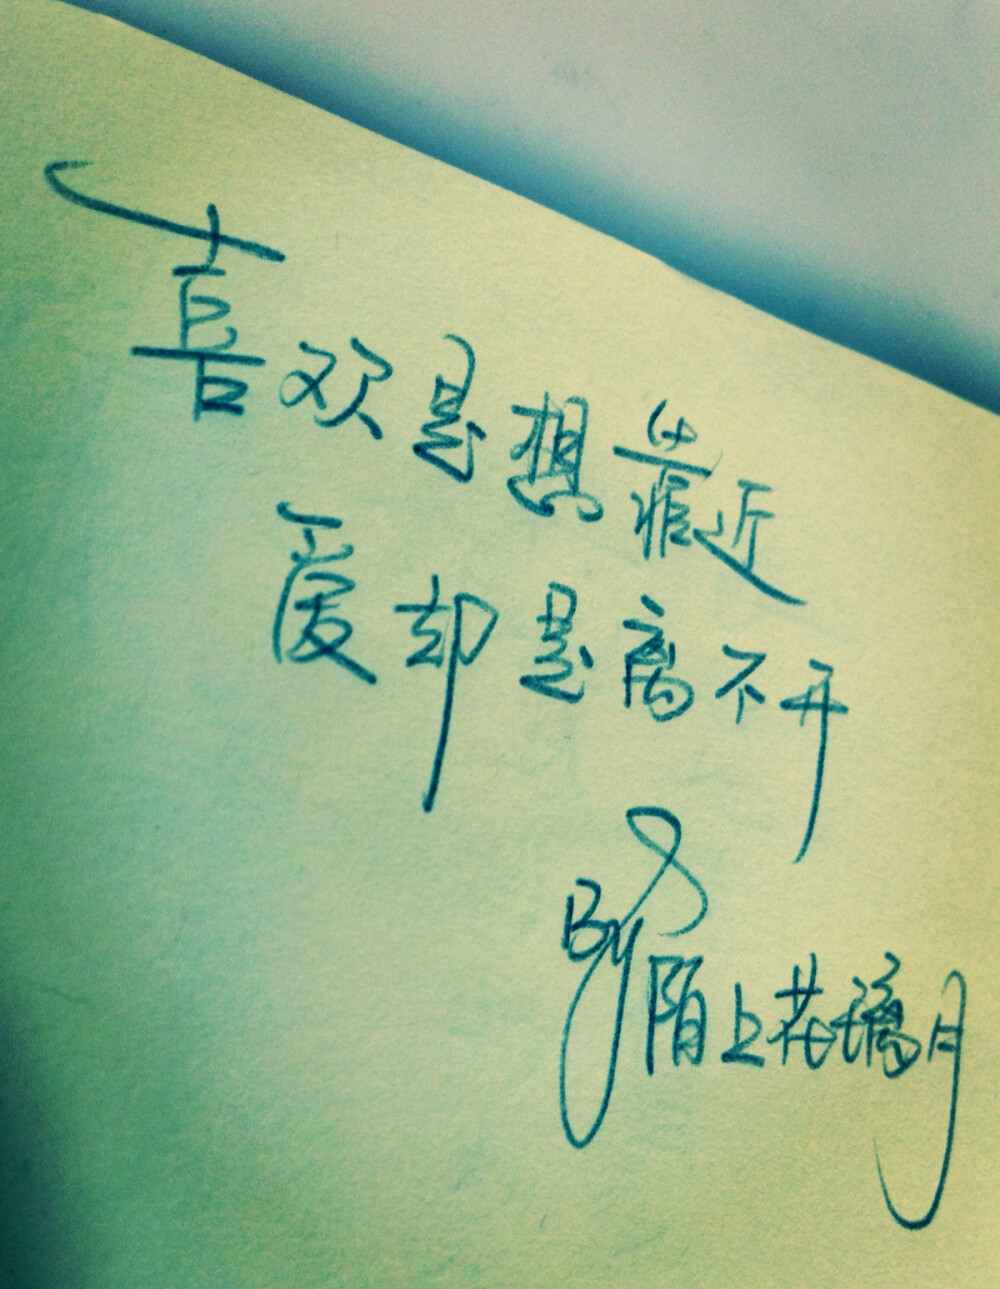 喜欢是想靠近
爱却是离不开
By陌上花璃月